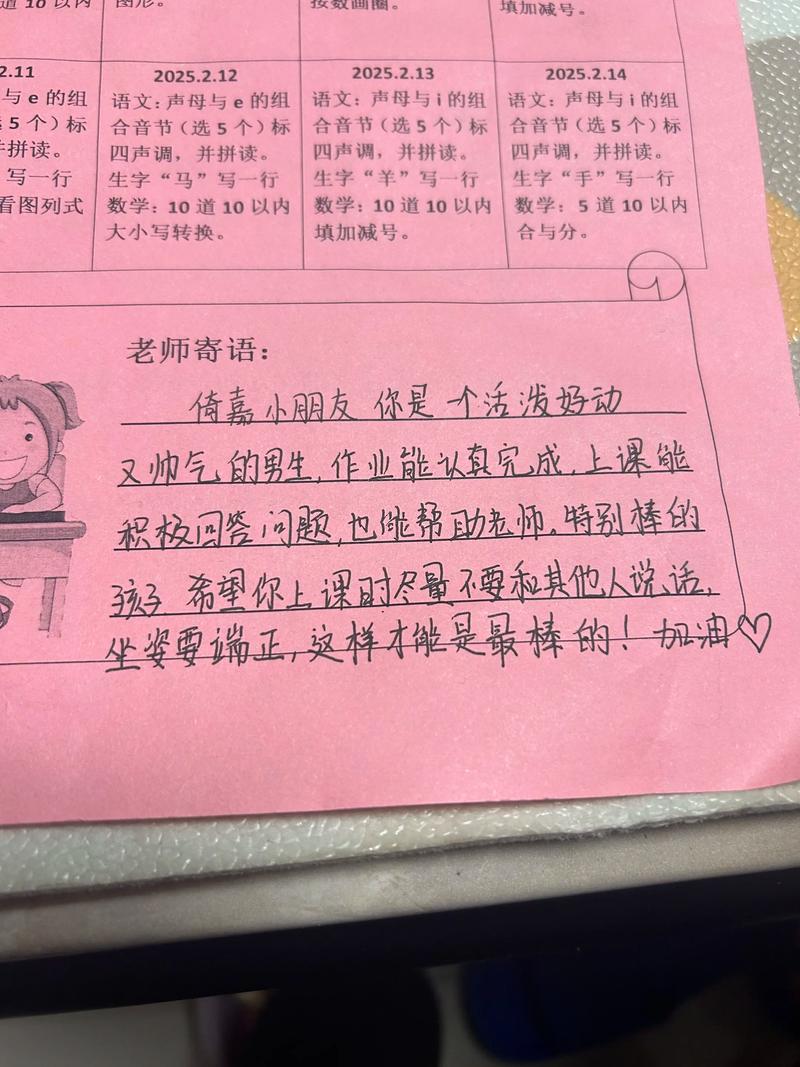 道 10 以内
图形。
按数画圈。
填加减号。
2.11
与 e 的组
选 5 个）标
并拼读。
写一行
看图列式
2025.2.12
语文：声母与 e 的组
合音节（选 5 个）标
四声调，并拼读。
生字“马”写一行
数学：10 道 10 以内
大小写转换。
2025.2.13
语文：声母与 i 的组
合音节（选 5 个）标
四声调，并拼读。
生字“羊”写一行
数学：10 道 10 以内
填加减号。
2025.2.14
语文：声母与 i 的组
合音节（选 5 个）标
四声调，并拼读。
生字“手”写一行
数学：5 道 10 以内
合与分。
老师寄语：
倚嘉小朋友 你是一个活泼好动
又帅气的男生，作业能认真完成，上课能
积极回答问题，也能帮助老师。特别棒的
孩子 希望你上课时尽量不要和其他人说话，
坐姿要端正，这样才能是最棒的！加油♡